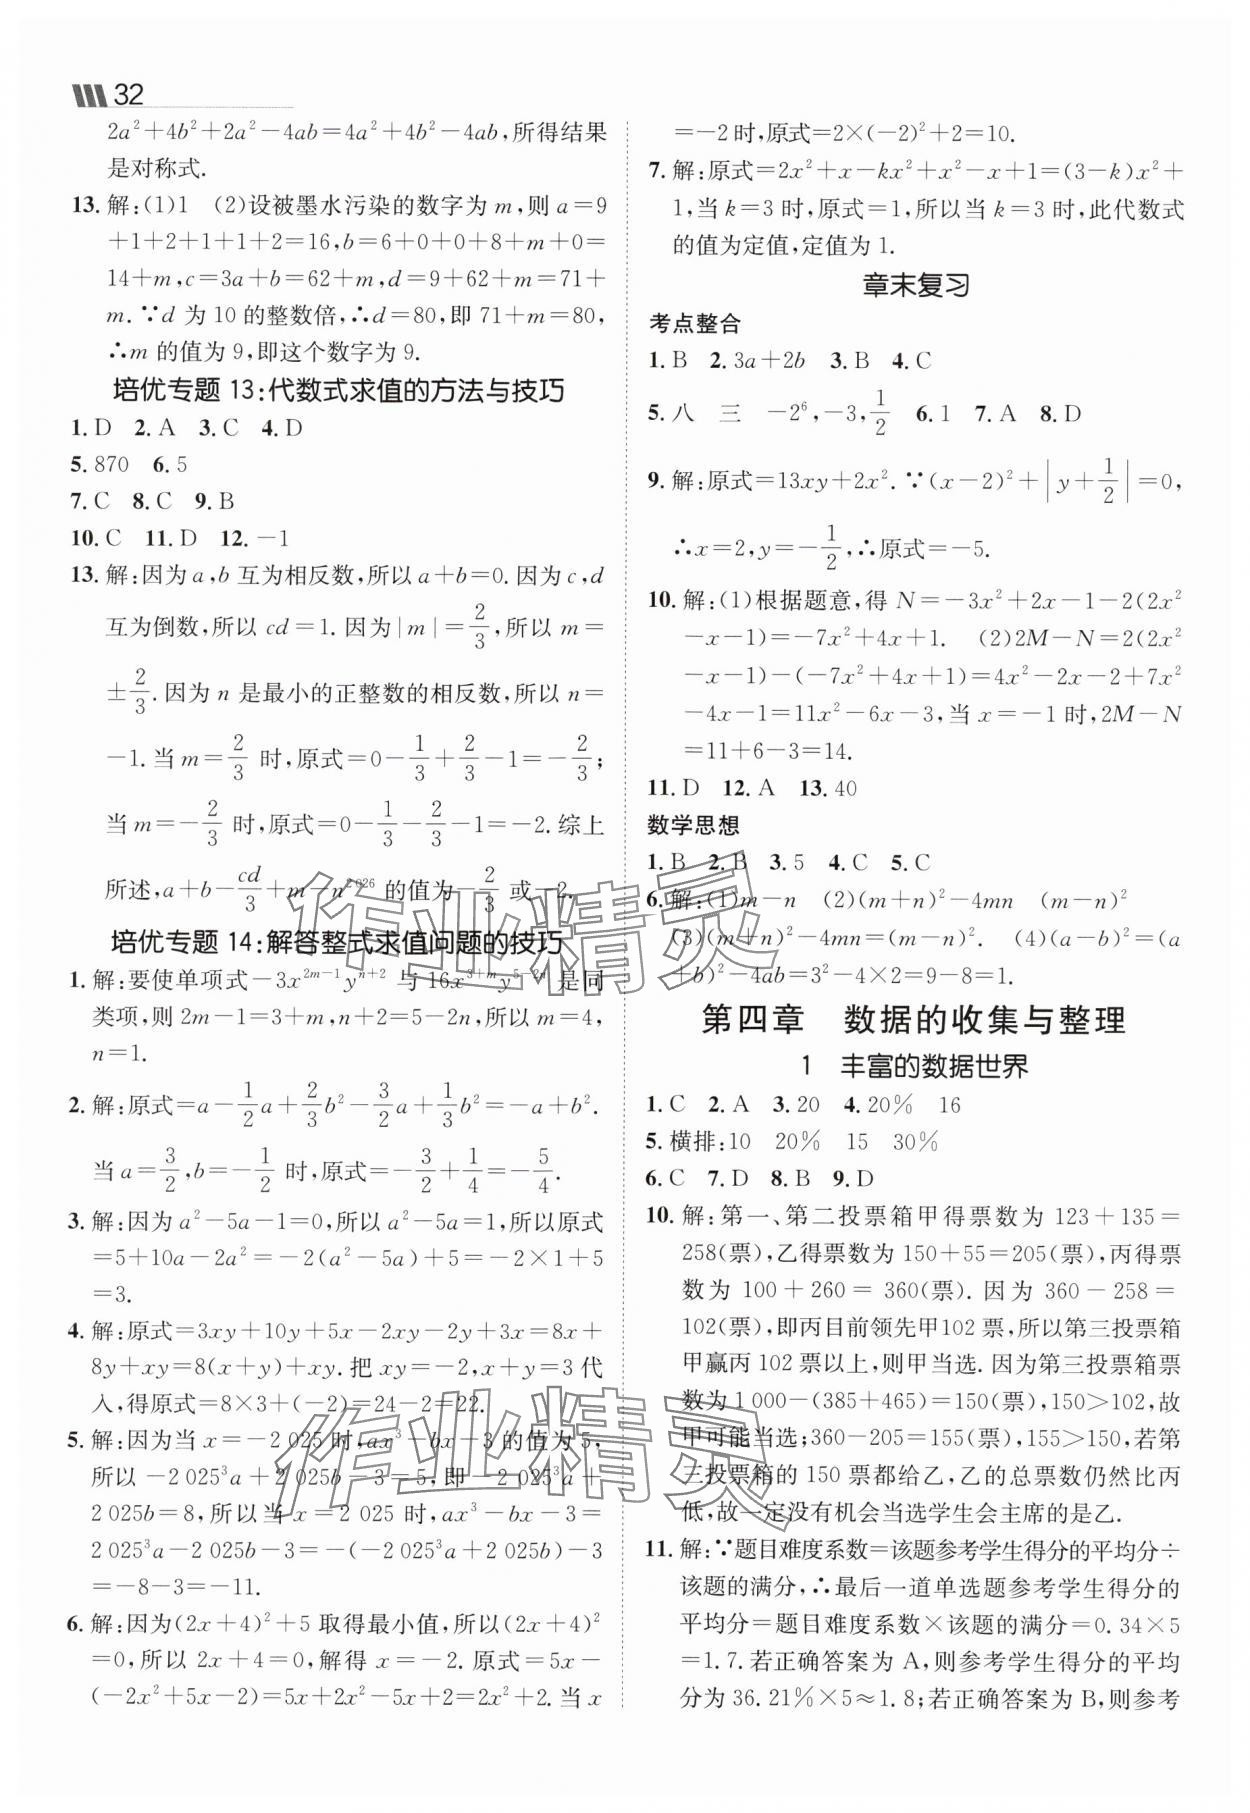 32
2a²+4b²+2a²-4ab=4a²+4b²-4ab,所得结果
是对称式.
13. 解:(1)1 (2)设被墨水污染的数字为 m,则 a=9
+1+2+1+1+2=16,b=6+0+0+8+m+0=
14+m,c=3a+b=62+m,d=9+62+m=71+
m.∵d 为 10 的整数倍,∴d=80,即 71+m=80,
∴m 的值为 9,即这个数字为 9.
培优专题 13:代数式求值的方法与技巧
1. D 2. A 3. C 4. D
5. 870 6. 5
7. C 8. C 9. B
10. C 11. D 12. -1
13. 解:因为 a,b 互为相反数,所以 a+b=0. 因为 c,d
互为倒数,所以 cd=1. 因为|m|=2/3,所以 m=
±2/3.因为 n 是最小的正整数的相反数,所以 n=
-1.当 m=2/3 时,原式=0-1/3+2/3-1=-2/3;
当 m=-2/3 时,原式=0-1/3-2/3-1=-2. 综上
所述,a+b-cd/3+m-n²⁰²⁶ 的值为-2/3 或-2.
培优专题 14:解答整式求值问题的技巧
1. 解:要使单项式-3x²ᵐ⁻¹yⁿ⁺² 与 16x³⁺ᵐy⁵⁻²ⁿ 是同
类项,则 2m-1=3+m,n+2=5-2n,所以 m=4,
n=1.
2. 解:原式=a-1/2a+2/3b²-3/2a+1/3b²=-a+b².
当 a=3/2,b=-1/2 时,原式=-3/2+1/4=-5/4.
3. 解:因为 a²-5a-1=0,所以 a²-5a=1,所以原式
=5+10a-2a²=-2(a²-5a)+5=-2×1+5
=3.
4. 解:原式=3xy+10y+5x-2xy-2y+3x=8x+
8y+xy=8(x+y)+xy. 把 xy=-2,x+y=3 代
入,得原式=8×3+(-2)=24-2=22.
5. 解:因为当 x=-2 025 时,ax³-bx-3 的值为 5,
所以-2 025³a+2 025b-3=5,即-2 025³a+
2 025b=8,所以当 x=2 025 时,ax³-bx-3=
2 025³a-2 025b-3=-(-2 025³a+2 025b)-3
=-8-3=-11.
6. 解:因为(2x+4)²+5 取得最小值,所以(2x+4)²
=0,所以 2x+4=0,解得 x=-2. 原式=5x-
(-2x²+5x-2)=5x+2x²-5x+2=2x²+2. 当 x
=-2时,原式=2×(-2)²+2=10.
7. 解:原式=2x²+x-kx²+x²-x+1=(3-k)x²+
1,当 k=3 时,原式=1,所以当 k=3 时,此代数式
的值为定值,定值为 1.
章末复习
考点整合
1. B 2. 3a+2b 3. B 4. C
5. 八 三 -2⁶,-3,1/2 6. 1 7. A 8. D
9. 解:原式=13xy+2x².∵(x-2)²+|y+1/2|=0,
∴x=2,y=-1/2,∴原式=-5.
10. 解:(1)根据题意,得 N=-3x²+2x-1-2(2x²
-x-1)=-7x²+4x+1. (2)2M-N=2(2x²
-x-1)-(-7x²+4x+1)=4x²-2x-2+7x²
-4x-1=11x²-6x-3,当 x=-1 时,2M-N
=11+6-3=14.
11. D 12. A 13. 40
数学思想
1. B 2. B 3. 5 4. C 5. C
6. 解:(1)m-n (2)(m+n)²-4mn (m-n)²
(3)(m+n)²-4mn=(m-n)². (4)(a-b)²=(a
+b)²-4ab=3²-4×2=9-8=1.
第四章 数据的收集与整理
1 丰富的数据世界
1. C 2. A 3. 20 4. 20% 16
5. 横排:10 20% 15 30%
6. C 7. D 8. B 9. D
10. 解:第一、第二投票箱甲得票数为 123+135=
258(票),乙得票数为 150+55=205(票),丙得票
数为 100+260=360(票). 因为 360-258=
102(票),即丙目前领先甲102 票,所以第三投票箱
甲赢丙 102 票以上,则甲当选. 因为第三投票箱票
数为 1 000-(385+465)=150(票),150>102,故
甲可能当选;360-205=155(票),155>150,若第
三投票箱的 150 票都给乙,乙的总票数仍然比丙
低,故一定没有机会当选学生会主席的是乙.
11. 解:∵题目难度系数=该题参考学生得分的平均分÷
该题的满分,∴最后一道单选题参考学生得分的
平均分=题目难度系数×该题的满分=0.34×5
=1.7. 若正确答案为 A,则参考学生得分的平均
分为 36.21%×5≈1.8;若正确答案为 B,则参考
作业精灵
作业精灵